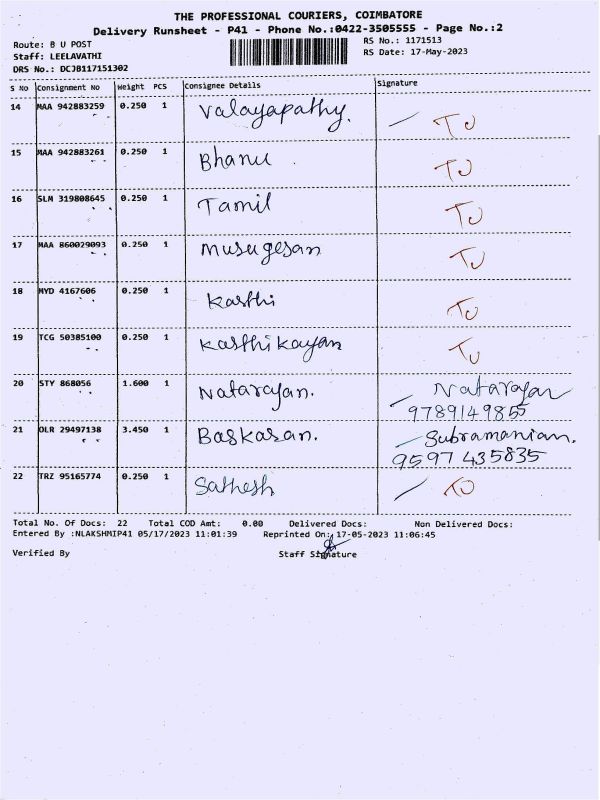 THE PROFESSIONAL COURIERS, COIMBATORE
Delivery Runsheet - P41 - Phone No.:0422-3505555 - Page No.:2
Route: B U POST
RS No.: 1171513
Staff: LEELAVATHI
RS Date: 17-May-2023
DRS No.: DCJB117151302
S No Consignment No Weight PCS Consignee Details Signature
14 MAA 942883259 0.250 1 Valayapathy. TU
15 MAA 942883261 0.250 1 Bhanu TU
16 SLM 319808645 0.250 1 Tamil TU
17 MAA 860029093 0.250 1 Musugesan TU
18 MYD 4167606 0.250 1 Kasthi TU
19 TCG 50385100 0.250 1 Kasthikayan TU
20 STY 868056 1.600 1 Natarayan. Natarayan
9789149855
21 DLR 29497138 3.450 1 Baskasan. Subramanian.
9597 435835
22 TRZ 95165774 0.250 1 Sathesh TU
Total No. Of Docs: 22 Total COD Amt: 0.00 Delivered Docs: Non Delivered Docs:
Entered By :NLAKSHMIP41 05/17/2023 11:01:39 Reprinted On: 17-05-2023 11:06:45
Verified By Staff Signature